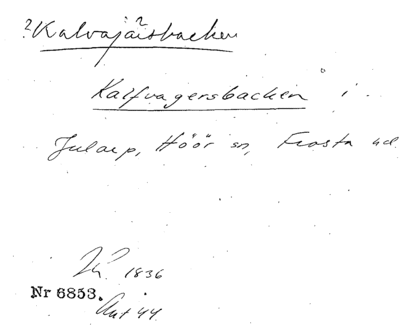 ? Kalvajärsbacken
Kalfvagersbacken i
Jularp, Höör sn, Frosta hd
1836
Nr 6853.
Akt 44